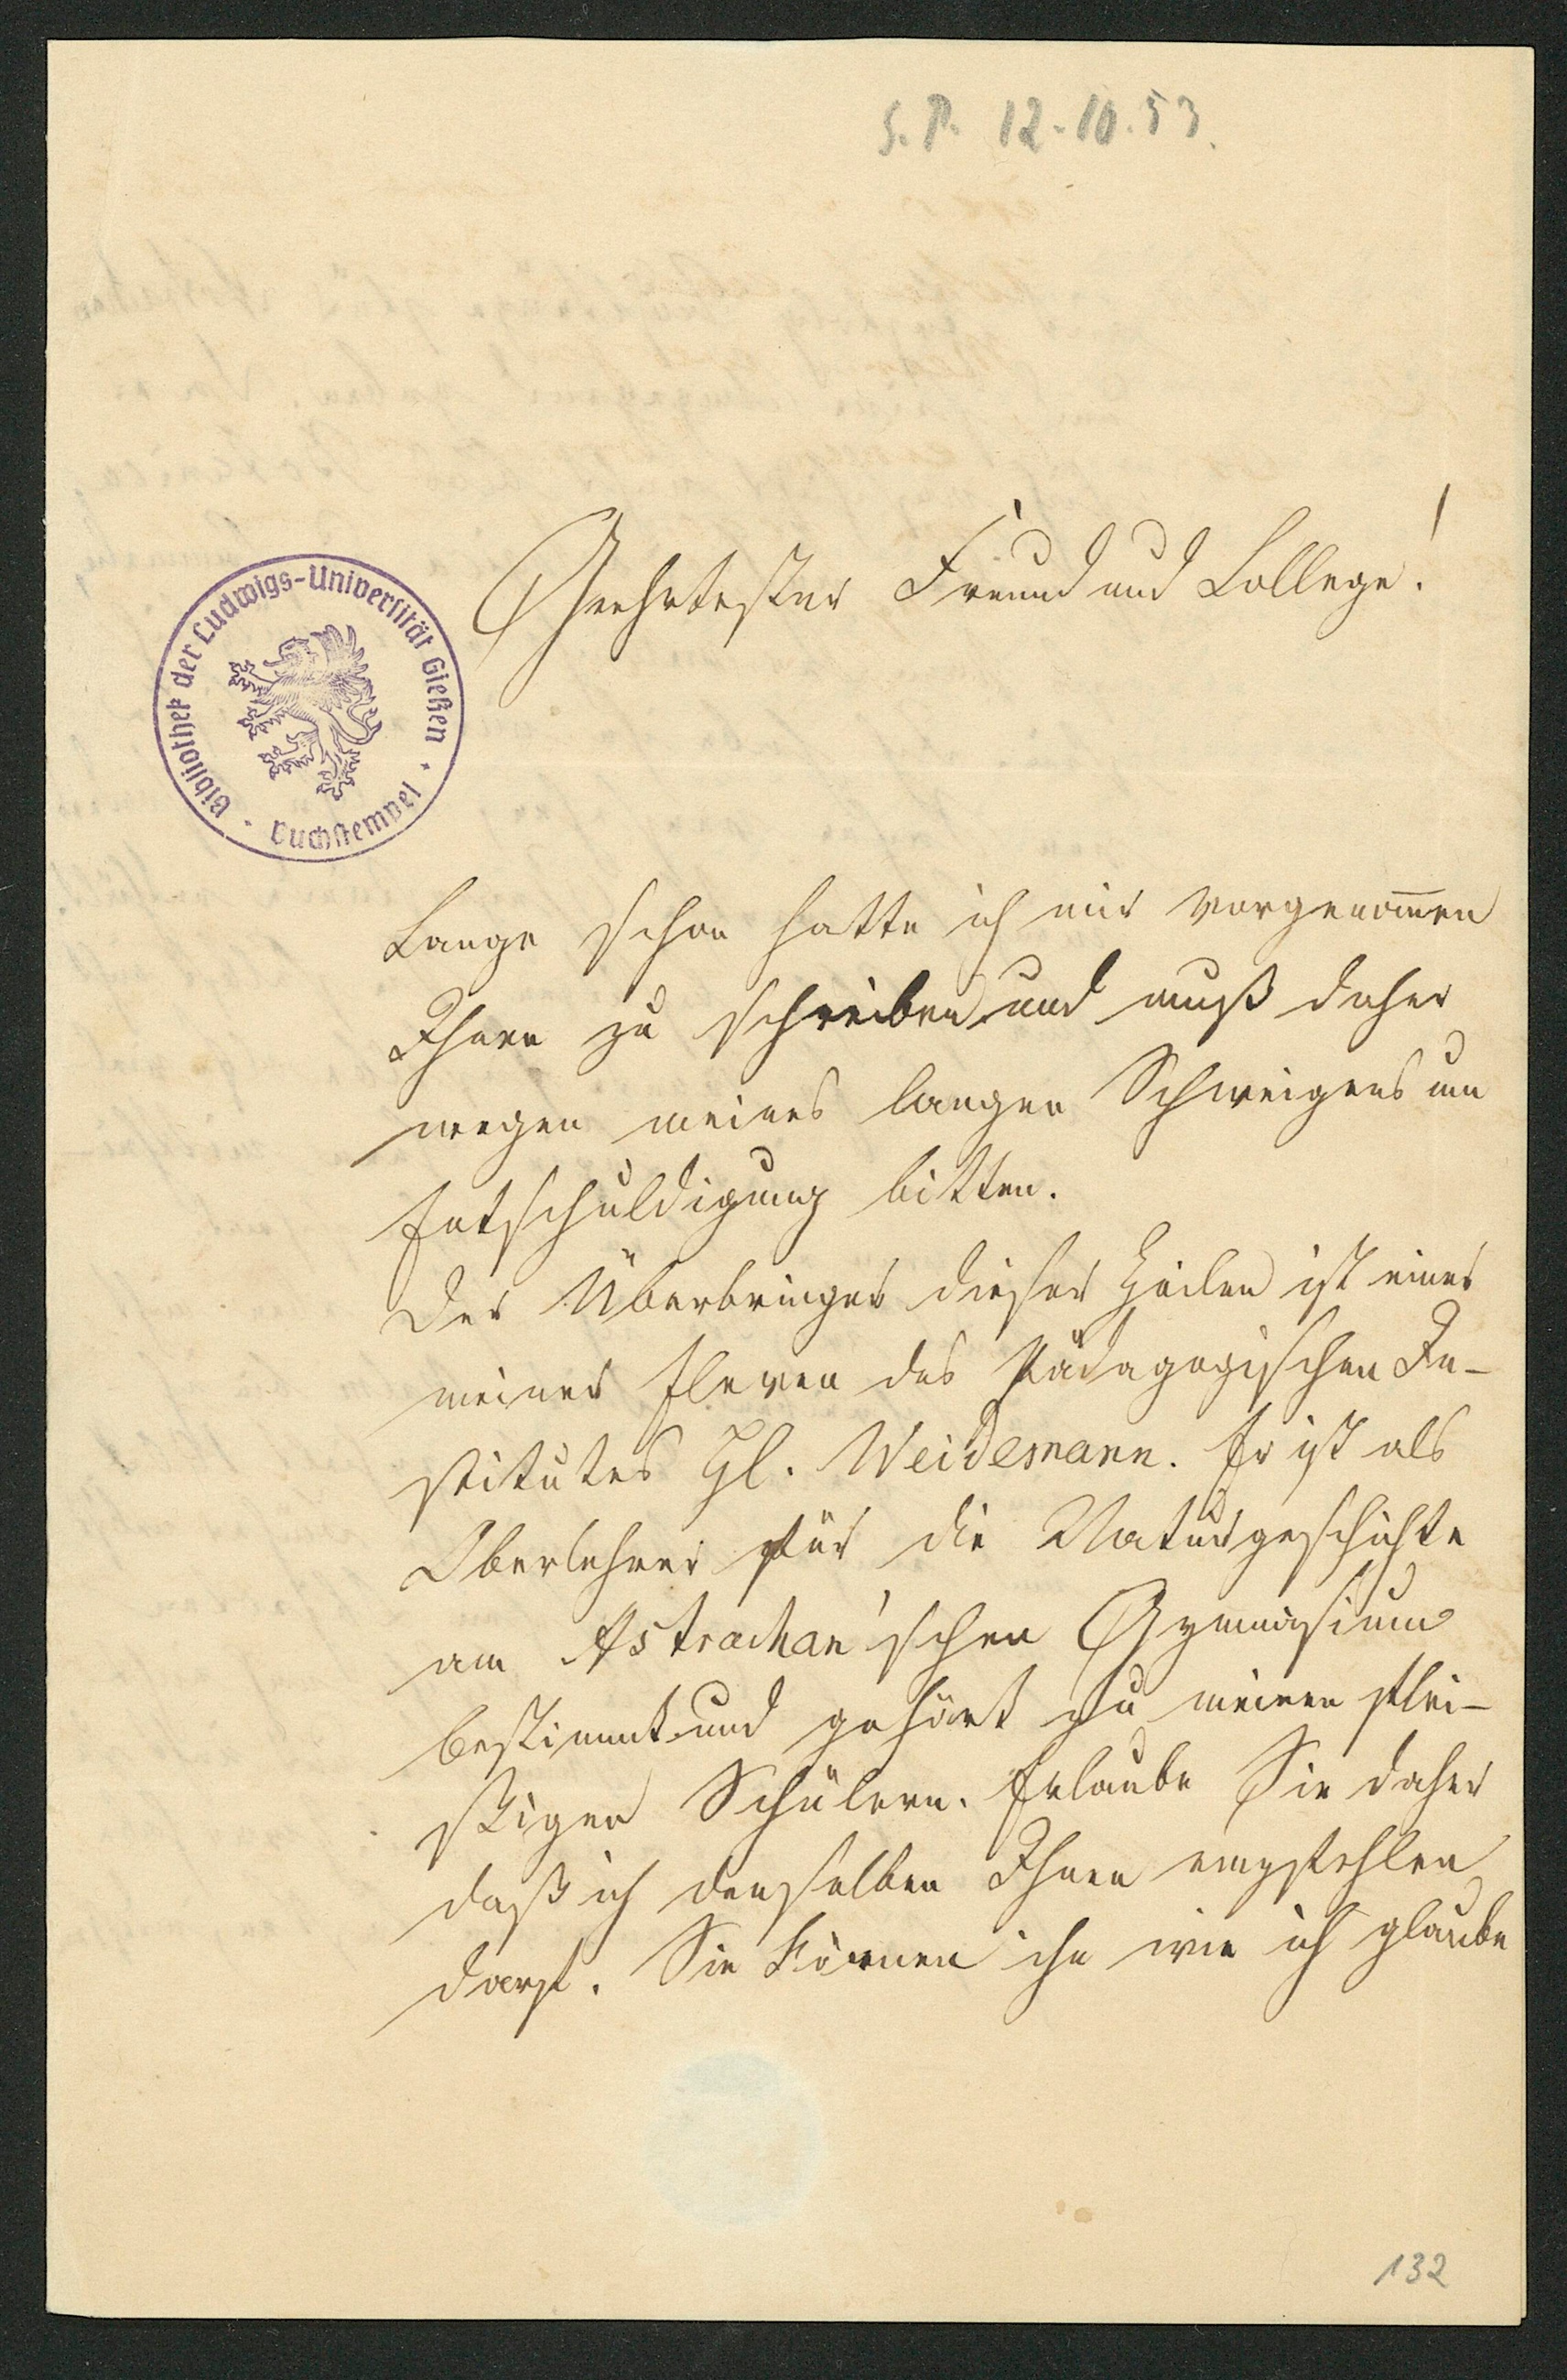 S. P. 12-10.53.
Geehrtester Freund und College!
Bibliothek der Ludwigs-Universität Gießen
Buchstempel
Lange schon hatte ich mir vorgenom̅en
Ihnen zu schreiben und muß daher
wegen meines langen Schweigens um
Entschuldigung bitten.
Der Überbringer dieser Zeilen ist einer
meiner Eleven des Pädagogischen In-
stitutes Hl. Weidemann. Er ist als
Oberlehrer für die Naturgeschichte
am Astrachan'schen Gymnasium
bestimmt und gehört zu meinen flei-
ßigen Schülern. Erlaube Sie daher
daß ich denselben Ihnen empfehlen
darf. Sie können ihn wie ich glaube
132